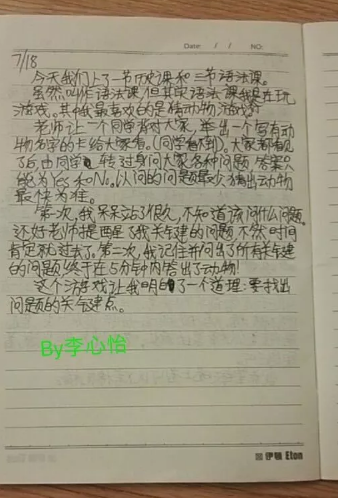 Date: / / NO:
7/18
今天我们上了一节历史课和三节语法课。
虽然叫作语法课,但其实语法课就是在玩
游戏。其中我最喜欢的是猜动物游戏。
老师让一个同学背对大家,举出一个写有动
物名字的卡给大家看。(同学看不到)。大家都看见
了后,由同学转过身问大家各种问题,答案只
能为Yes和No。以问的问题最少猜出动物
最快为准。
第一次,我呆呆站了很久,不知道该问什么问题。
还好老师提醒了我关键的问题,不然时间
肯定就过去了。第二次,我记住并问出了所有关键
的问题,终于在5分钟内答出了动物!
这个游戏让我明白了一个道理:要找出
问题的关键点。
By李心怡
伊顿 Eton